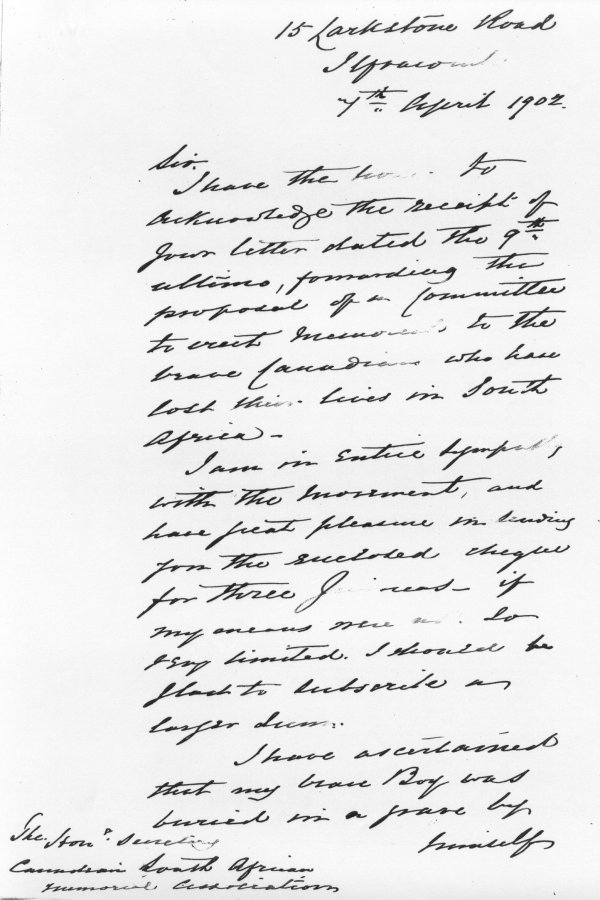 15 Larkstone Road
Ilfracombe
7th April 1902.
Sir.
I have the honor to
acknowledge the receipt of
your letter dated the 9th
ultimo, forwarding the
proposal of a Committee
to erect Memorials to the
brave Canadians who have
lost their lives in South
Africa -
I am in entire sympathy
with the movement, and
have great pleasure in sending
you the enclosed cheque
for three Guineas - if
my means were not so
very limited. I should be
glad to subscribe a
larger sum.
I have ascertained
that my brave Boy was
buried in a grave by
himself
The Honr. Secretary
Canadian South African
Memorial Association